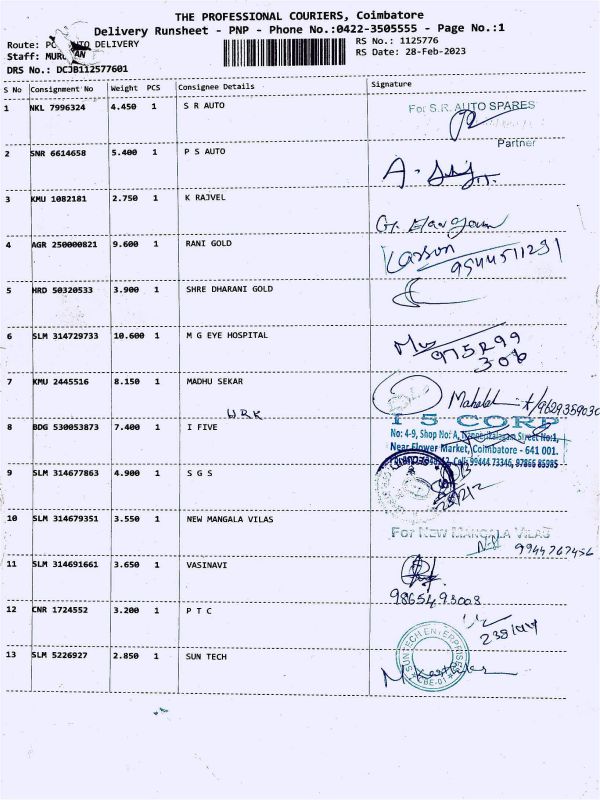 THE PROFESSIONAL COURIERS, Coimbatore
Delivery Runsheet - PNP - Phone No.:0422-3505555 - Page No.:1
Route: DELIVERY
RS No.: 1125776
Staff:
RS Date: 28-Feb-2023
DRS No.: DCJB112577601
S No Consignment No Weight PCS Consignee Details Signature
1 NKL 7996324 4.450 1 S R AUTO For S.R. AUTO SPARES
Partner
2 SNR 6614658 5.400 1 P S AUTO
3 KMU 1082181 2.750 1 K RAJVEL
4 AGR 250000821 9.600 1 RANI GOLD
9544511231
5 HRD 50320533 3.900 1 SHRE DHARANI GOLD
6 SLM 314729733 10.600 1 M G EYE HOSPITAL
7 KMU 2445516 8.150 1 MADHU SEKAR
I 5 CORP
8 BDG 530053873 7.400 1 I FIVE No: 4-9, Shop No: A, Street No:1,
Near Flower Market, Coimbatore - 641 001.
99444 73346, 97866 85985
9 SLM 314677863 4.900 1 S G S
10 SLM 314679351 3.550 1 NEW MANGALA VILAS For NEW MANGALA VILAS
9944767456
11 SLM 314691661 3.650 1 VASINAVI
9865493003
12 CNR 1724552 3.200 1 P T C
13 SLM 5226927 2.850 1 SUN TECH SUN TECH ENTERPRISES
CBE-01